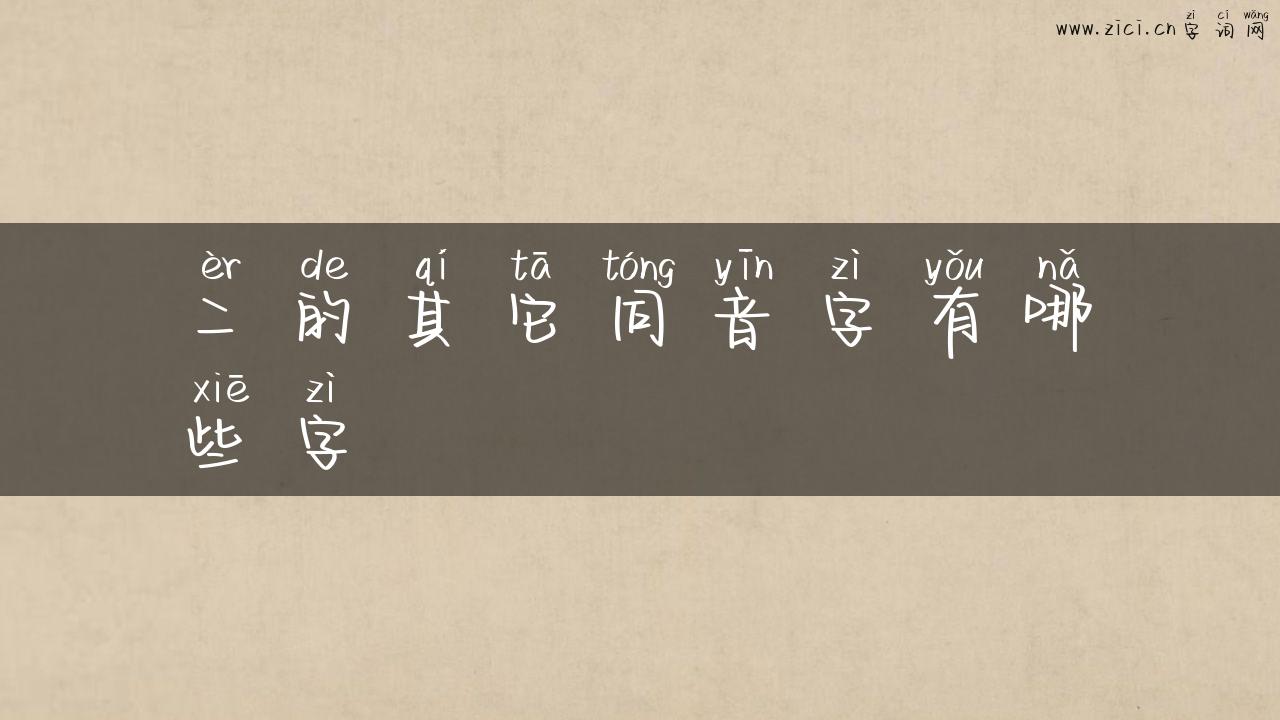 zì cí wǎng
www.zici.cn 字词网
èr de qí tā tóng yīn zì yǒu nǎ
二的其它同音字有哪
xiē zì
些字